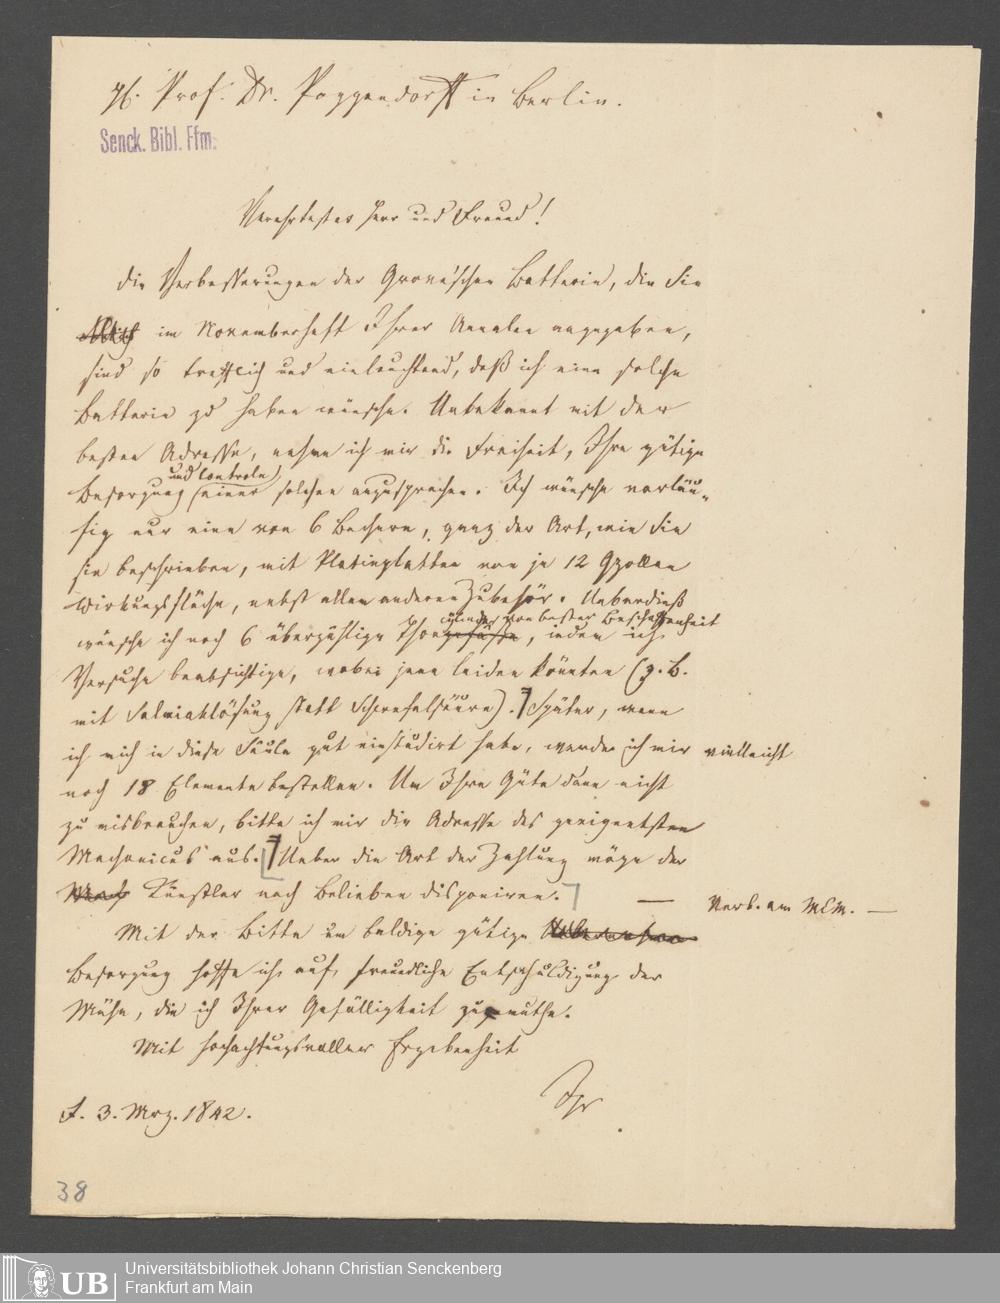 H. Prof. Dr. Poggendorff in Berlin.
Senck. Bibl. Ffm.
Verehrtester Herr und Freund!
Die Verbesserungen der Grove'schen Batterie, die Sie
im Novemberheft Ihrer Annalen angegeben,
sind so trefflich und einleuchtend, daß ich eine solche
Batterie zu haben wünsche. Unbekannt mit der
besten Adresse, nehme ich mir die Freiheit, Ihre gütige
und Controle
Besorgung einer solchen anzusprechen. Ich wünsche vorläu-
fig nur eine von 6 Bechern, ganz der Art, wie Sie
sie beschrieben, mit Platinplatten von je 12 Zollen
Wirkungsfläche, nebst allem anderen Zubehör. Ueberdieß
cylinder von bester Beschaffenheit
wünsche ich noch 6 überzählige Thongefässe, indem ich
Versuche beabsichtige, wobei jene leiden könnten (z. B.
mit Salmiaklösung statt Schwefelsäure). Später, wenn
ich mich in diese Säule gut einstudirt habe, werde ich mir vielleicht
noch 18 Elemente bestellen. Um Ihre Güte dann nicht
zu misbrauchen, bitte ich mir die Adresse des geeignetsten
Mechanicus aus. Ueber die Art der Zahlung möge der
Künstler nach Belieben disponiren. —
Verb. am — 
Mit der Bitte um baldige gütige
Besorgung hoffe ich auf freundliche Entschuldigung der
Mühe, die ich Ihrer Gefälligkeit zumuthe.
Mit hochachtungsvoller Ergebenheit
Ihr
F. 3. Mrz. 1842.
38
UB
Universitätsbibliothek Johann Christian Senckenberg
Frankfurt am Main